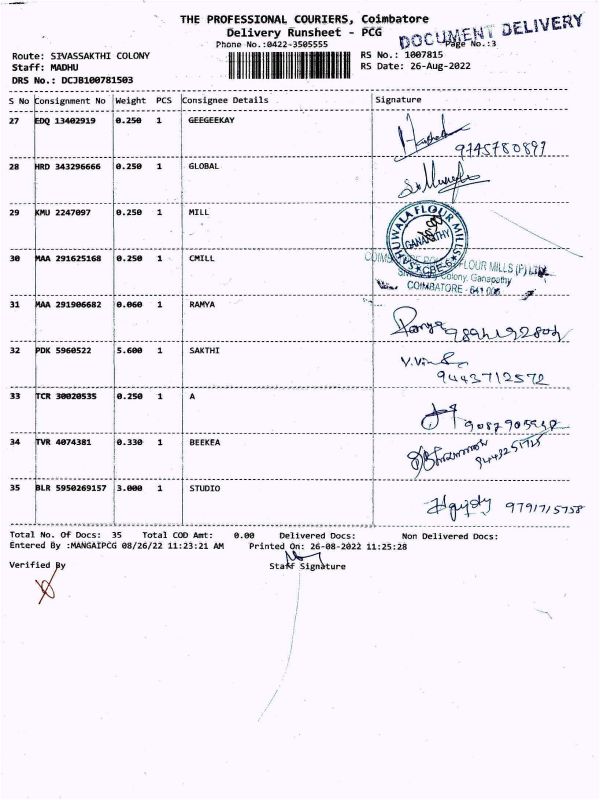 THE PROFESSIONAL COURIERS, Coimbatore
Delivery Runsheet - PCG
DOCUMENT DELIVERY
Phone No.:0422-3505555
Page No.:3
Route: SIVASSAKTHI COLONY
RS No.: 1007815
Staff: MADHU
RS Date: 26-Aug-2022
DRS No.: DCJB100781503
S No Consignment No Weight PCS Consignee Details Signature
27 EDQ 13402919 0.250 1 GEEGEEKAY
9745780897
28 HRD 343296666 0.250 1 GLOBAL
29 KMU 2247097 0.250 1 MILL
SAHUWALA FLOUR MILLS
GANAPATHY
CBE-6
30 MAA 291625168 0.250 1 CMILL
FLOUR MILLS (P) LTD
Colony, Ganapathy
COIMBATORE - 641 006
31 MAA 291906682 0.060 1 RAMYA
Ramya
32 PDK 5960522 5.600 1 SAKTHI
9443712572
33 TCR 30020535 0.250 1 A
34 TVR 4074381 0.330 1 BEEKEA
35 BLR 5950269157 3.000 1 STUDIO
9791715758
Total No. Of Docs: 35 Total COD Amt: 0.00 Delivered Docs: Non Delivered Docs:
Entered By :MANGAIPCG 08/26/22 11:23:21 AM Printed On: 26-08-2022 11:25:28
Verified By Staff Signature